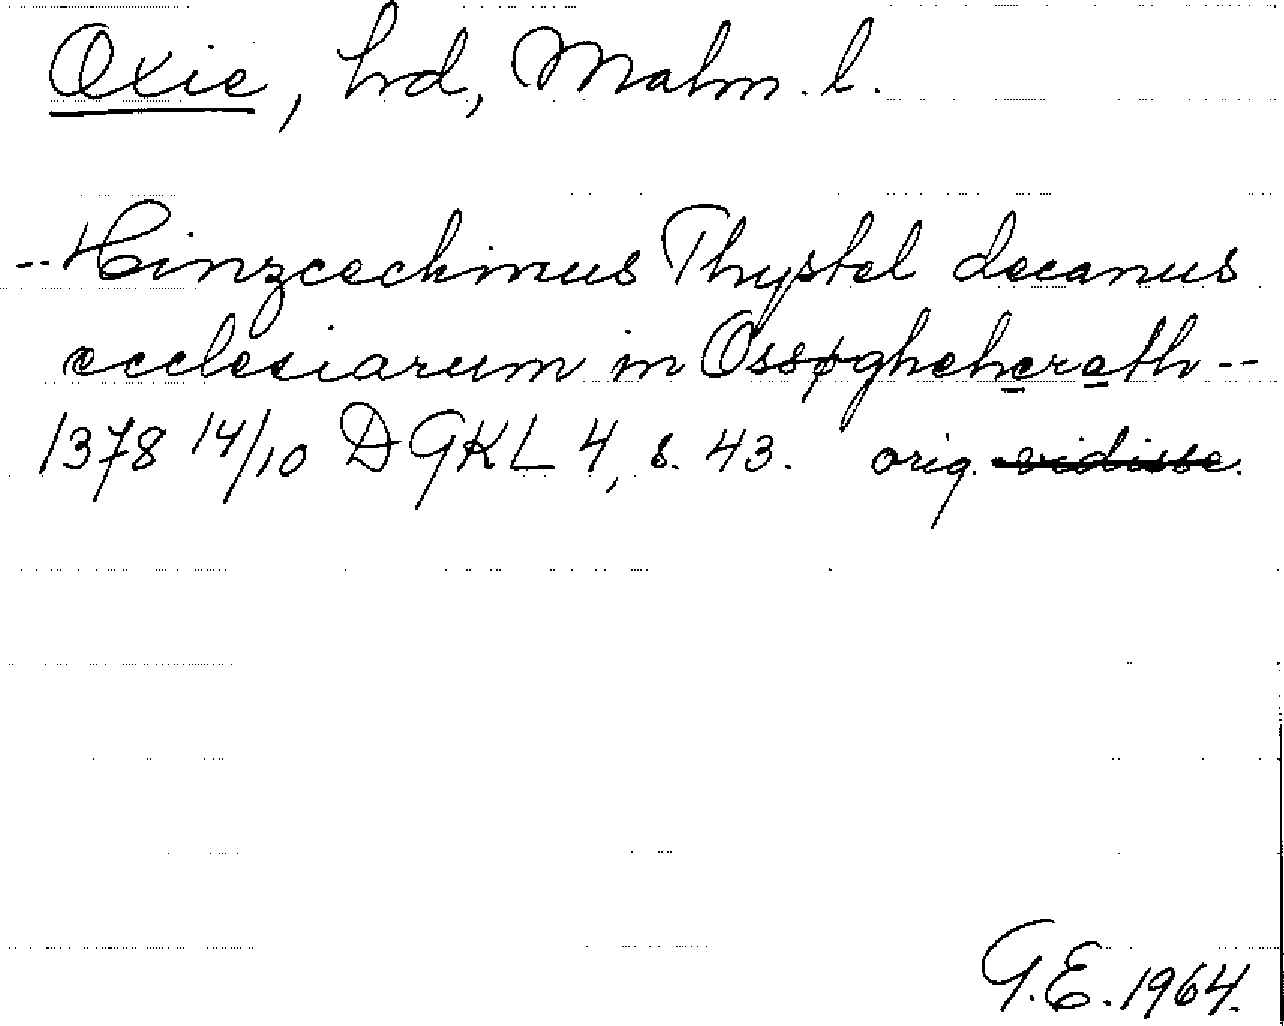 Oxie, hrd, Malm. l.
--Hinzcechinus Thystel decanus
ecclesiarum in Ossøgheherath--
1378 14/10 DGKL 4, s. 43. orig. vidisse.
G.E. 1964.